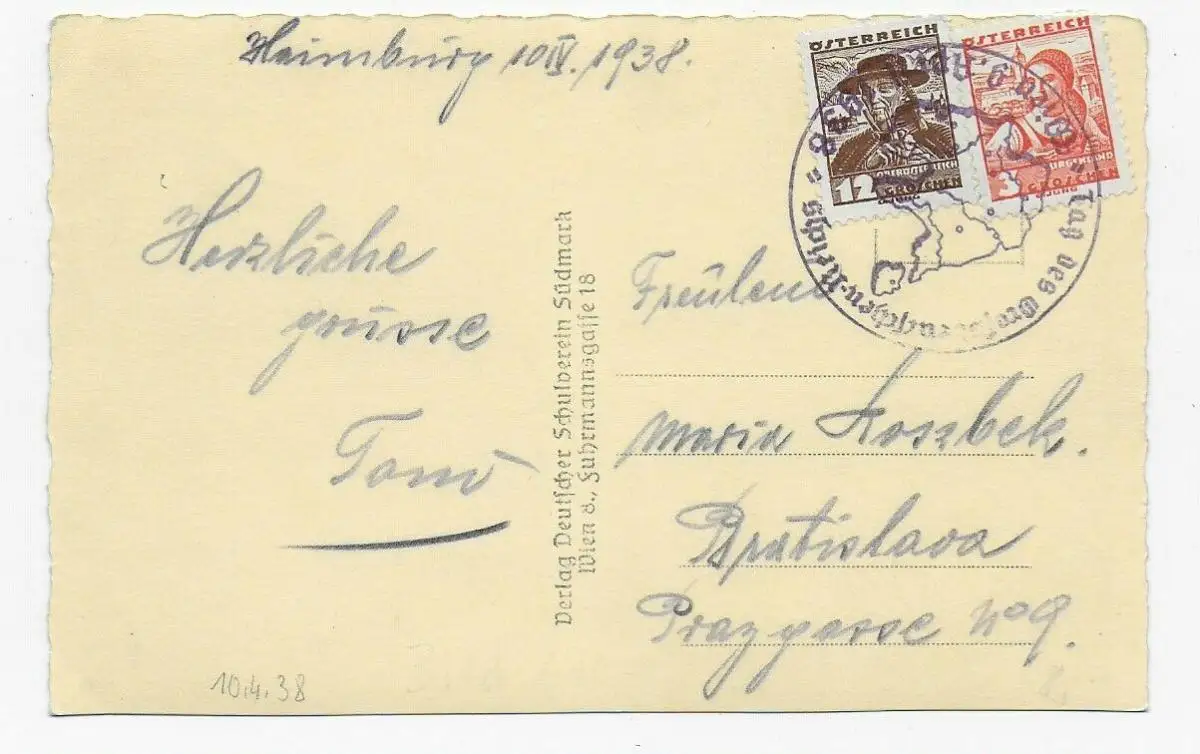 Heimburg 10 IV. 1938.
ÖSTERREICH
12
OBERÖSTERREICH
GROSCHEN
ÖSTERREICH
3
BURGENLAND
GROSCHEN
9. April 1938
= Tag des Großdeutschen Reichs =
Herzliche
grüsse
Toni
Verlag Deutscher Schulverein Südmark
Wien 8., Fuhrmannsgasse 18
Freülene
Maria Koszbek.
Bratislava
Prazgasse No 9.
10.4.38